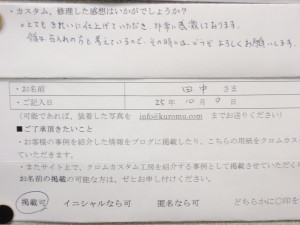 ・カスタム、修理した感想はいかがでしょうか？
・とてもきれいに仕上げていただき、非常に感激しております。
考えているので、その時はどうぞよろしくお願いします。
・お名前 田中 さま
・ご記入日 25年10月9日
(可能であれば、装着した写真を info@kuromu.com までお送りください)
■ご了承頂きたいこと
・お客様の事例を紹介した情報をブログに掲載したり、こちらの用紙をクロムカス
ていただきます。
・またサイト上で、クロムカスタム工房を紹介する事例として掲載させていただく
お名前の掲載の可能な方は、ぜひとお申し付けください。
掲載可 イニシャルなら可 匿名なら可 どちらかに○印を